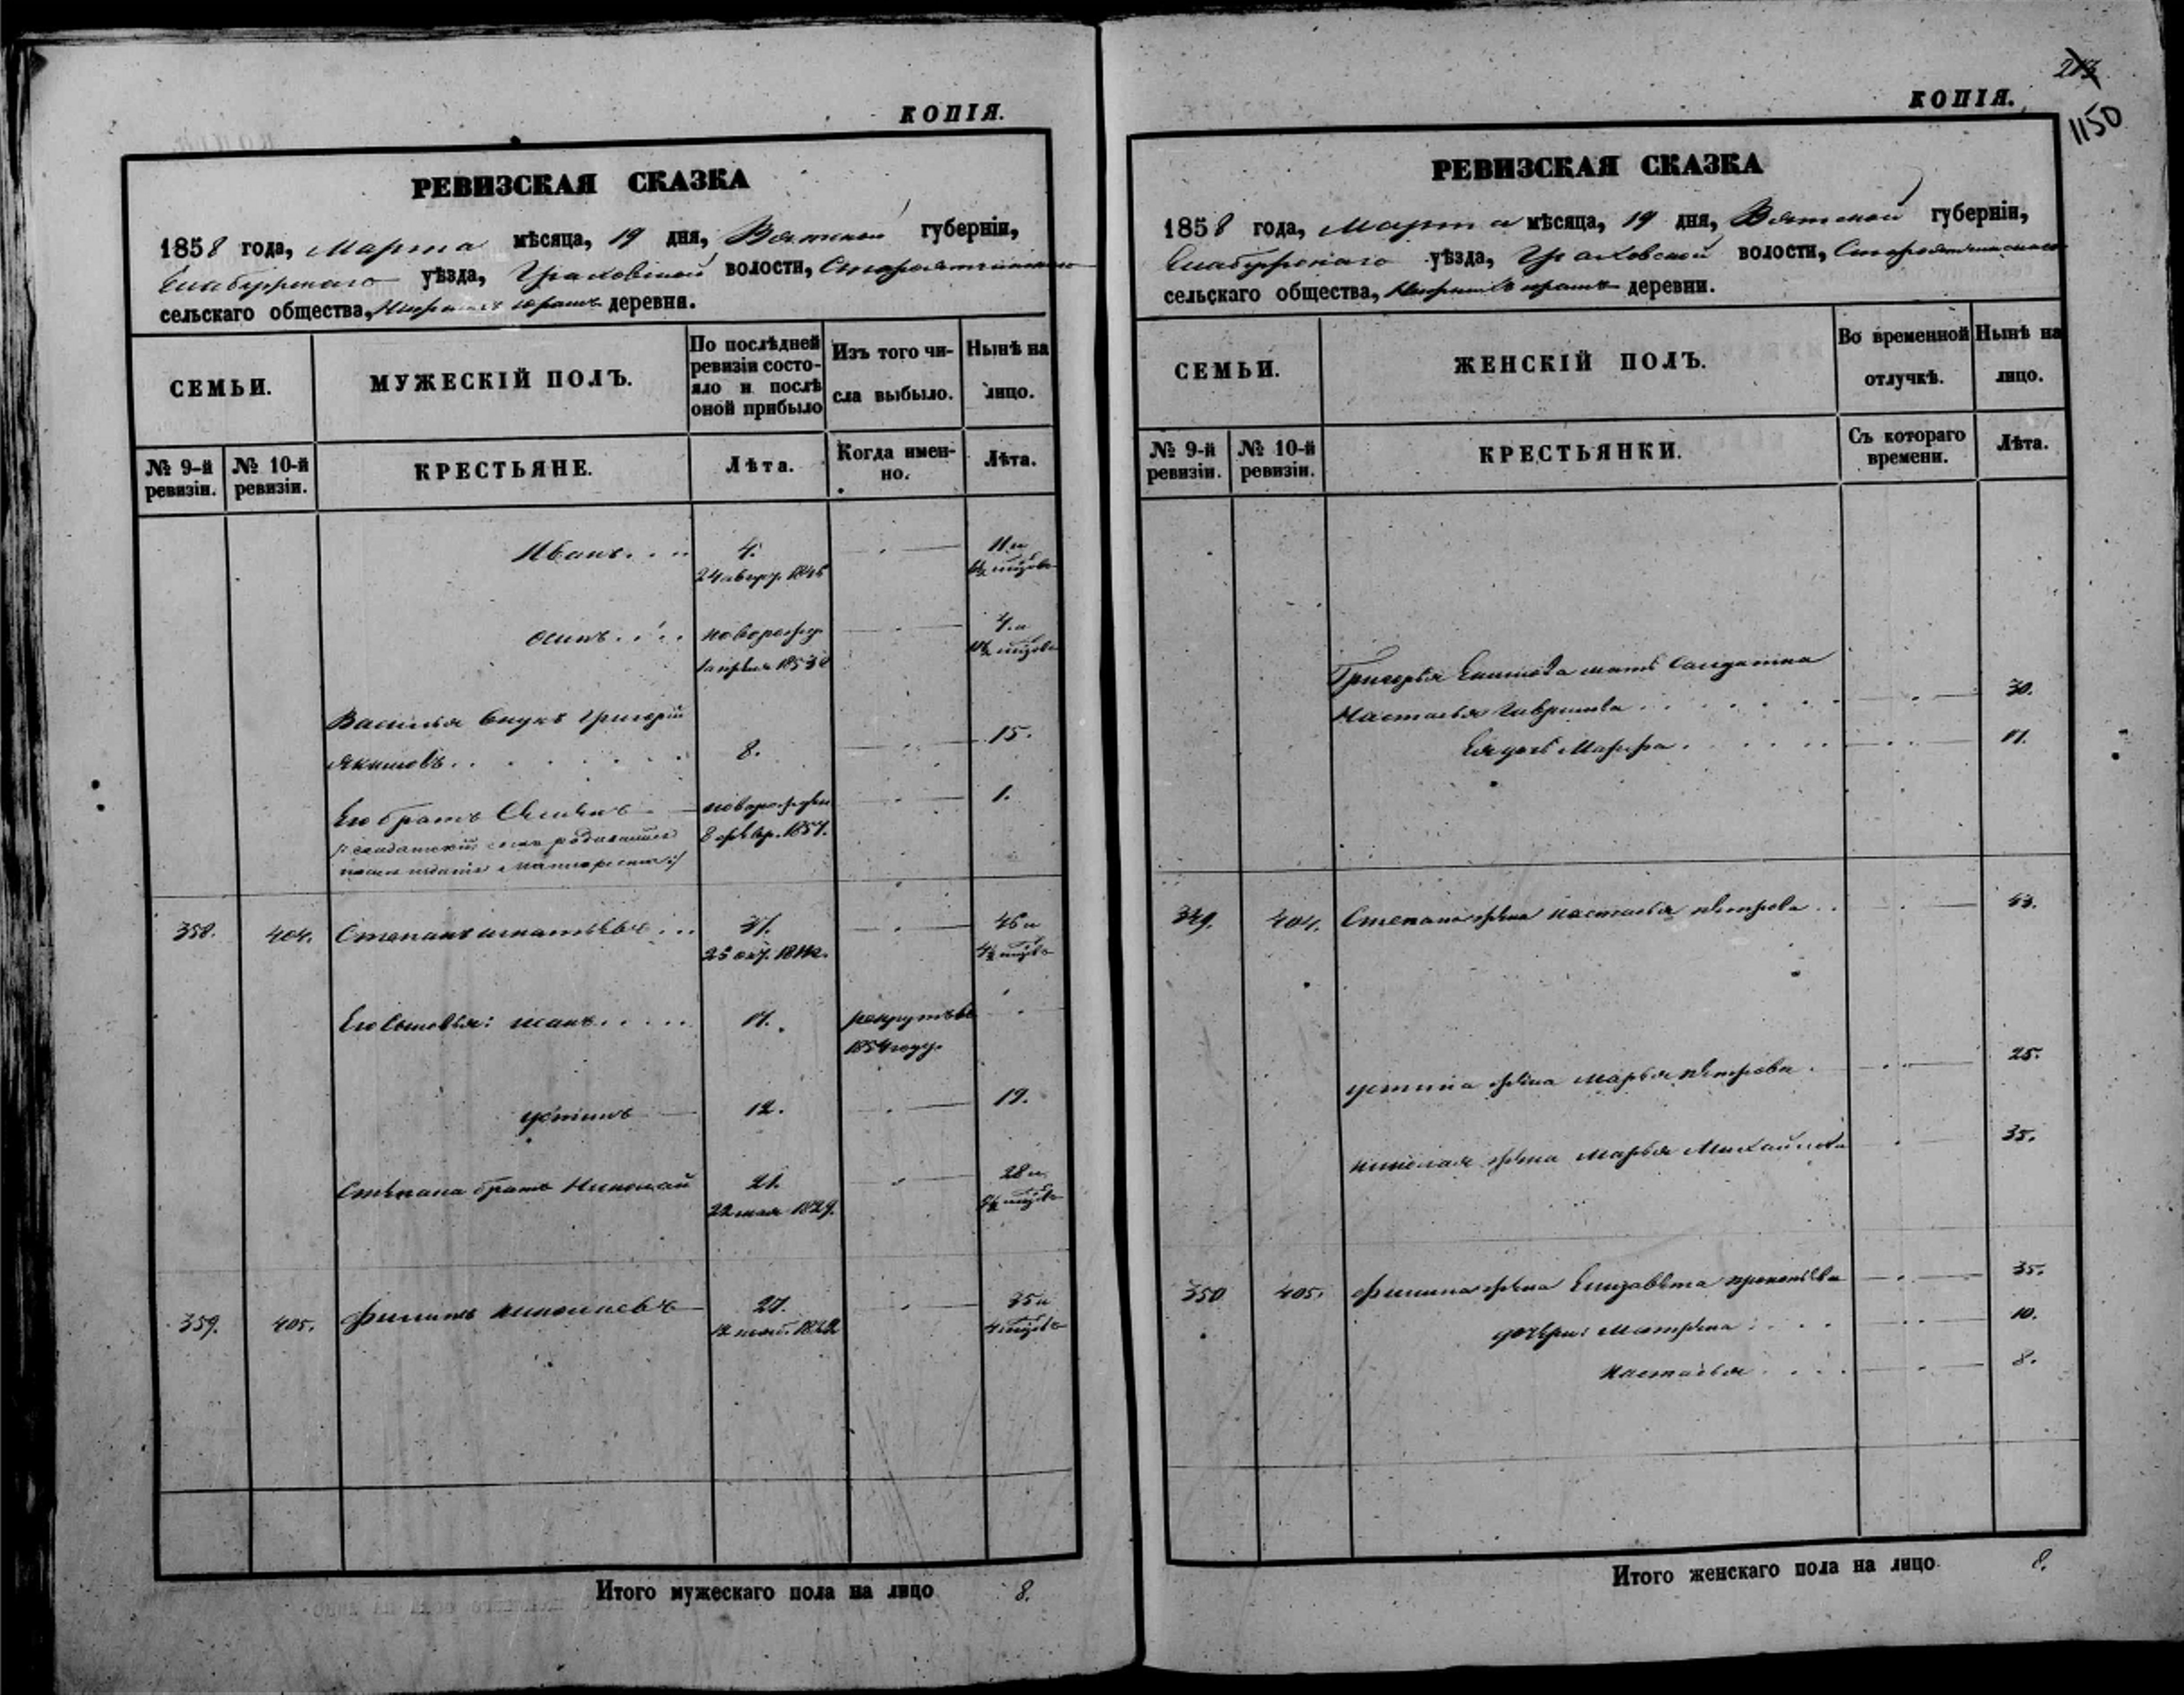 КОПІЯ.
РЕВИЗСКАЯ СКАЗКА
1858 года, Марта мѣсяца, 19 дня, Вятской губерніи,
Елабужскаго уѣзда, Граховской волости,
сельскаго общества, деревня.
СЕМЬИ.
МУЖЕСКІЙ ПОЛЪ.
По послѣдней ревизіи состояло и послѣ оной прибыло
Изъ того числа выбыло.
Нынѣ на лицо.
№ 9-й ревизіи.
№ 10-й ревизіи.
КРЕСТЬЯНЕ.
Лѣта.
Когда именно.
Лѣта.
Иванъ. . . . 4. 11 и
24 1846
Осипъ. . . . новорожд. 4. и
1 апрѣля 1853
Василья внукъ Григорій
Якимовъ. . . 8. 15.
Его братъ Семенъ новорожден 1.
8 февр. 1857.
/: солдатскій сынъ родившійся
послѣ изданія манифеста :/
358. 404. Степанъ Игнатьевъ . . . 37. 46 и
25 окт.
Его сыновья: . . . . рекрутъ въ
1854 году.
Устинъ 12. 19.
Степана братъ Николай 21. 28 и
22 мая 1829.
359. 405. Филипъ Николаевъ 27. 35 и
12 нояб. 1822
Итого мужескаго пола на лицо 8.
213
1150
КОПІЯ.
РЕВИЗСКАЯ СКАЗКА
1858 года, Марта мѣсяца, 19 дня, Вятской губерніи,
Елабужскаго уѣзда, Граховской волости,
сельскаго общества, деревни.
СЕМЬИ.
ЖЕНСКІЙ ПОЛЪ.
Во временной отлучкѣ.
Нынѣ на лицо.
№ 9-й ревизіи.
№ 10-й ревизіи.
КРЕСТЬЯНКИ.
Съ котораго времени.
Лѣта.
Григорья Екимова мать солдатка
Настасья Гаврилова . . . . 30.
Ея дочь Марфа . . . .
349. 404. Степана жена Настасья Петрова . . 43.
Устина жена Марья Петрова . 25.
Николая жена Марья Михайлова 35.
350 405. Филипа жена Елизавѣта Прокопьева 35.
дочери: Матрена . . . . 10.
Настасья . . . . 8.
Итого женскаго пола на лицо 8.